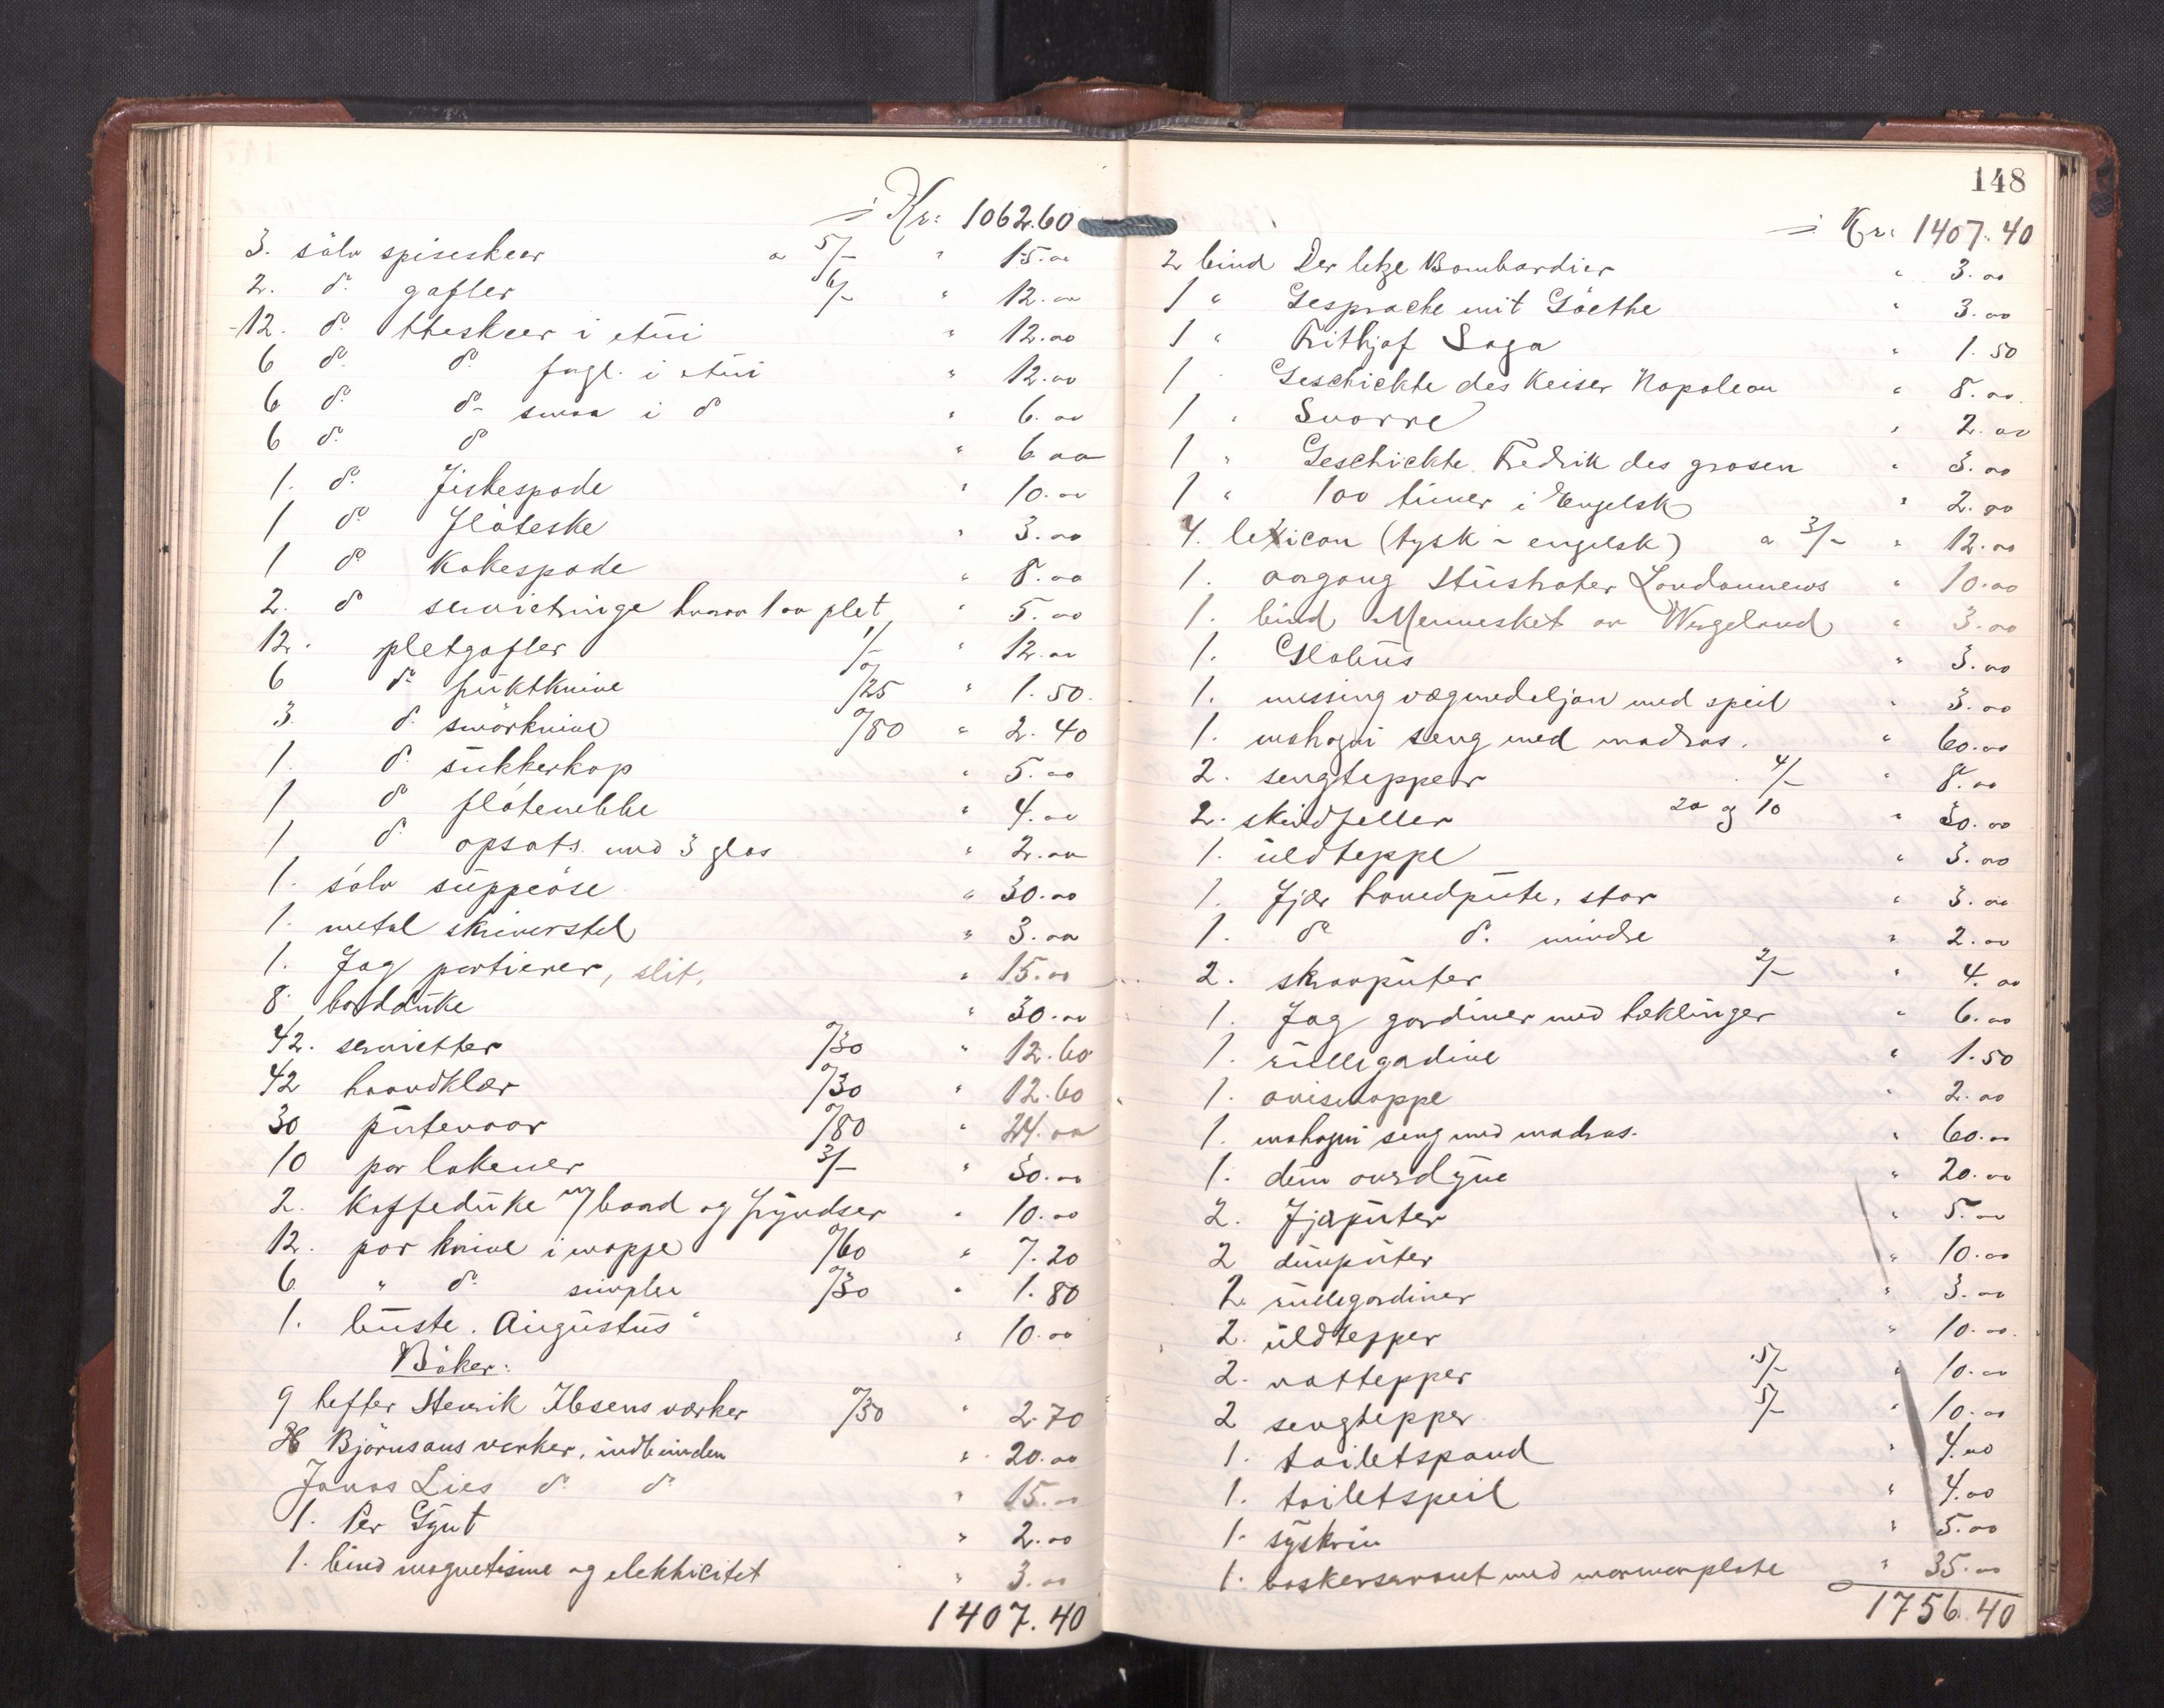 ÷ Kr: 1062.60
3. sölv spiseskeer a 5/- " 15.00
2. do gafler 6/- " 12.00
12. do theskeer i etui " 12.00
6 do do forgl. i etui " 12.00
6 do do smaa i do " 6.00
6 do do " 6.00
1. do Fiskespade " 10.00
1 do Flöteske " 3.00
1 do Kakespade " 8.00
2. do serviettringe hvorav 1 av plet " 5.00
12. pletgafler 1/- " 12.00
6 do fruktknive 0/25 " 1.50
3 do smörknive 0/80 " 2.40
1. do sukkerkop " 5.00
1 do flötenebbe " 4.00
1 do opsats med 3 glas " 2.00
1. sölv suppeöse " 30.00
1. metal skriverstel " 3.00
1. Fag portierer, slit. " 15.00
8. bordduke " 30.00
42. servietter 0/30 " 12.60
42 haandklær 0/30 " 12.60
30 putevaar 0/80 " 24.00
10 par lakener 3/- " 30.00
2. Kaffeduke m/ baand og fryndser " 10.00
12. par knive i mappe 0/60 " 7.20
6 " do simplere 0/30 " 1.80
1. büste "Augustus" " 10.00
Böker:
9 hefter Henrik Ibsens værker 0/30 " 2.70
Björnsons verker, indbunden " 20.00
Jonas Lies do do " 15.00
1. Per Gynt " 2.00
1. bind magnetisme og elektricitet " 3.00
1407.40
148
÷ Kr: 1407.40
2 bind Der letze Bombardier " 3.00
1 " Gesprache mit Göethe " 3.00
1 " Frithjof Saga " 1.50
1 " Geschickte des Keiser Napoleon " 8.00
1 " Snorre " 2.00
1 " Geschickte Fredrik des grosen " 3.00
1 " 100 timer i Engelsk " 2.00
4. lexicon (tysk - engelsk) a 3/- " 12.00
1. aargang Illustrater Londonnews " 10.00
1. bind Mennesket av Wergeland " 3.00
1. Globus " 3.00
1. messing vægmedaljon med speil " 3.00
1. mahogni seng med madras. " 60.00
2. sengtepper 4/- " 8.00
2. skindfeller 20 og 10 " 30.00
1. uldteppe " 3.00
1. Fjær hovedpute, stor " 3.00
1. do do mindre " 2.00
2. skraaputer 2/- " 4.00
1. Fag gardiner med beklinger " 6.00
1. rullegardine " 1.50
1. avismappe " 2.00
1. mahogni seng med madras. " 60.00
1. dun overdyne " 20.00
2. Fjærputer " 5.00
2 dunputer " 10.00
2. rullegardiner " 3.00
2. uldtepper " 10.00
2. vattepper 5/- " 10.00
2 sengtepper 5/- " 10.00
1. toiletspand " 4.00
1. toiletspeil " 4.00
1. syskrin " 5.00
1. vaskerservant med marmorplate " 35.00
1756.40